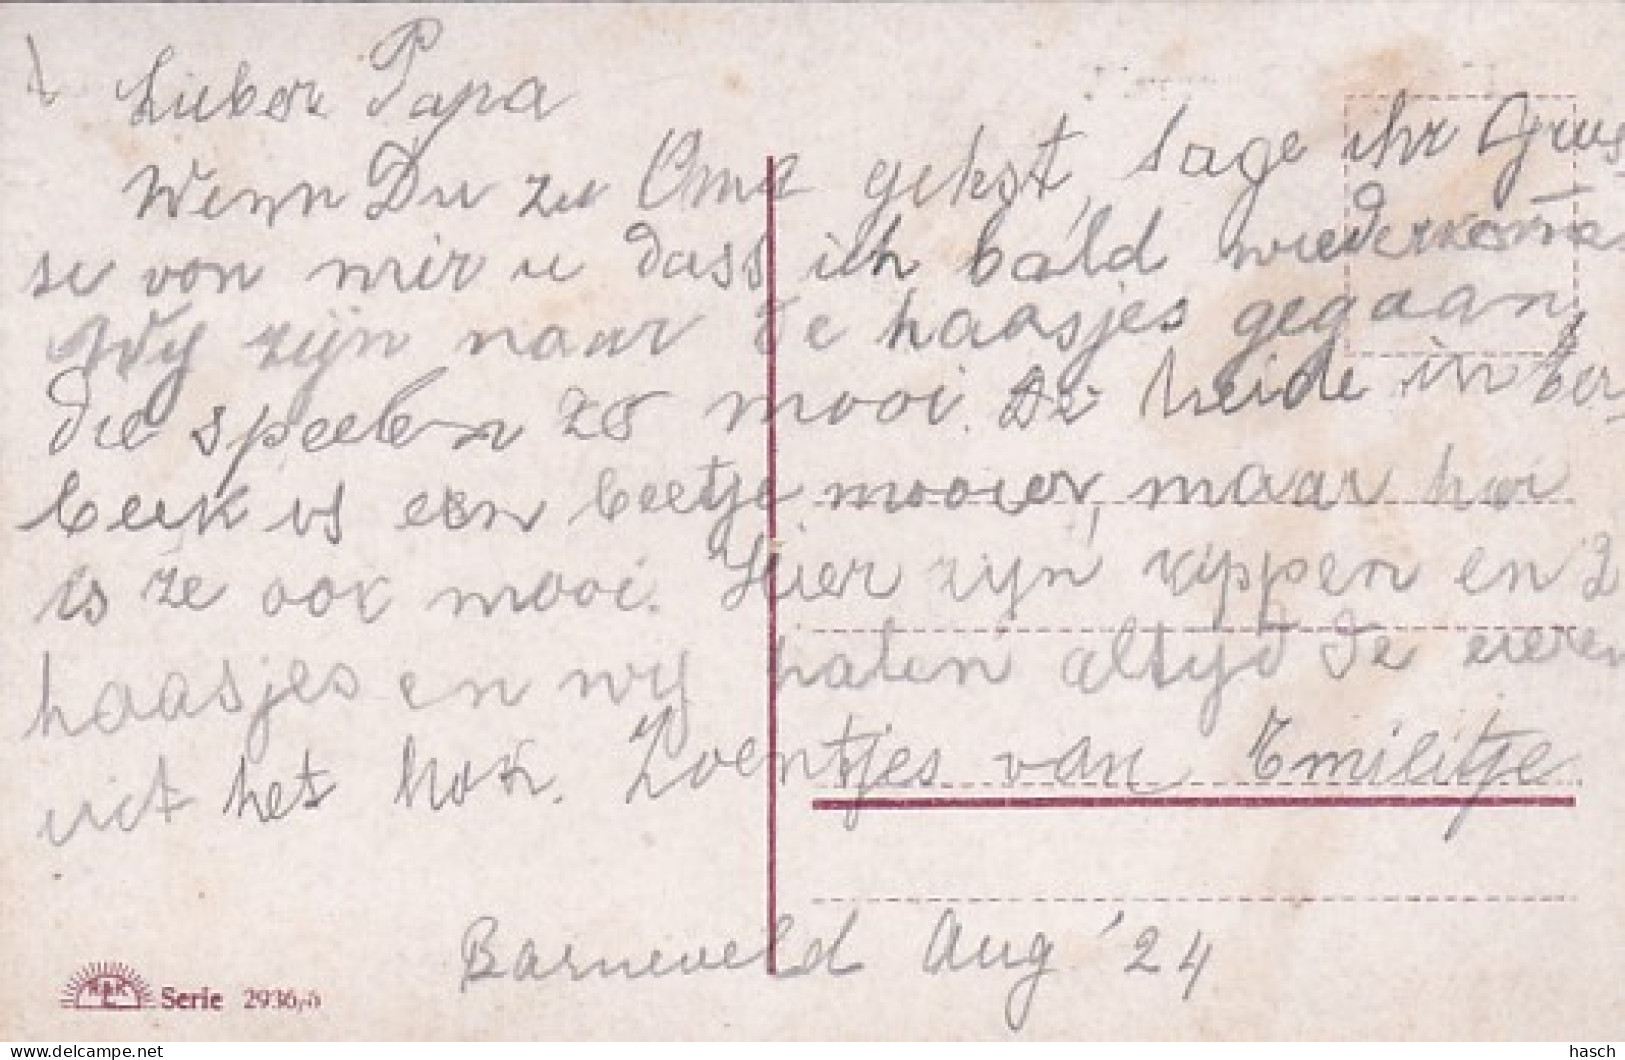 Lieber Papa
Wenn Du zu Oma gehst, sage ihr Grus
se von mir u dass ich bald wiederkomme
Wij zijn naar de haasjes gegaan,
die speelen zo mooi. De heide in Ber
beek is een beetje mooier, maar hei
is ze ook mooi. Hier zijn kippen en 2
haasjes en wij haten altijd de eieren
uit het hok. Zoentjes van Emilitje
Barneveld Aug '24
R&K L Serie 2936/5
hasch
https://www.delcampe.net